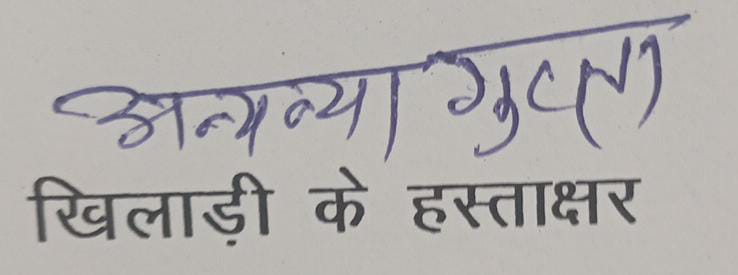 अनन्या गुप्ता
खिलाड़ी के हस्ताक्षर